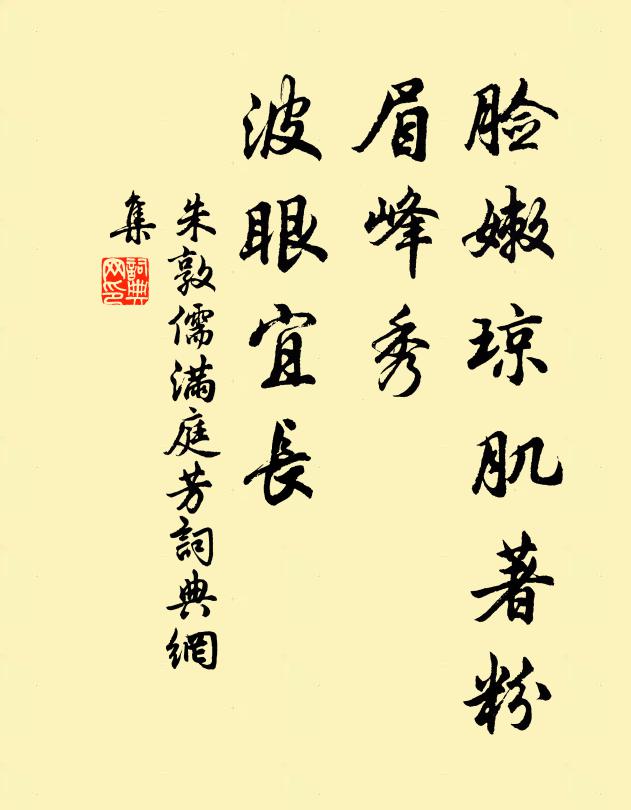 脸嫩琼肌著粉
眉峰秀
波眼宜長
朱敦儒滿庭芳詞典網
集
詞典網印